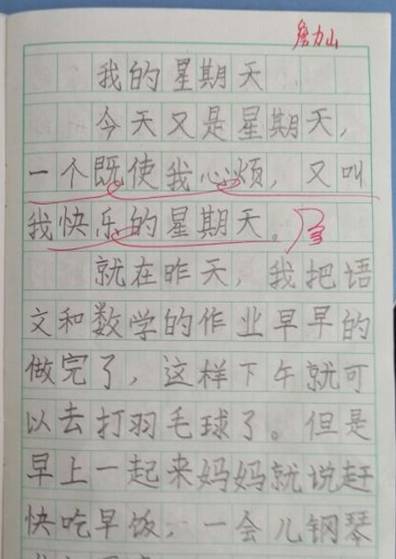 詹力山
我的星期天
今天又是星期天，
一个既使我心烦，又叫
我快乐的星期天。
就在昨天，我把语
文和数学的作业早早的
做完了，这样下午就可
以去打羽毛球了。但是
早上一起来妈妈就说赶
快吃早饭，一会儿钢琴